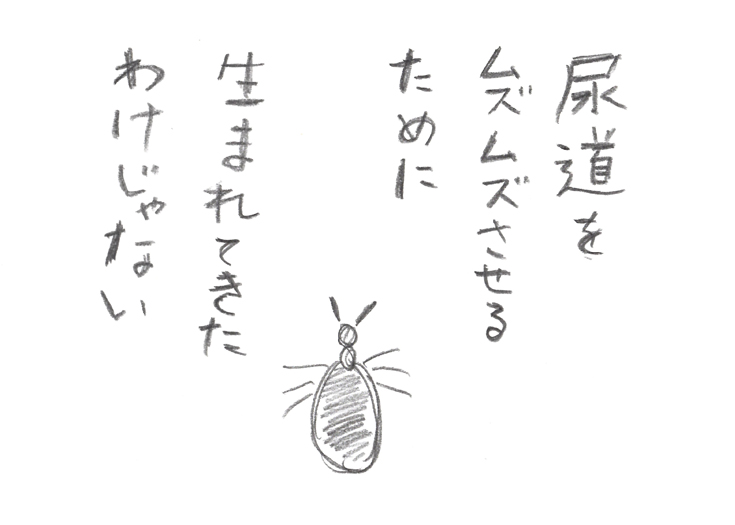 尿道を
ムズムズさせる
ために
生まれてきた
わけじゃない